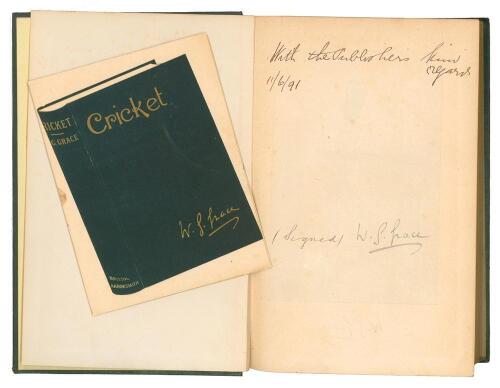 CRICKET
W.G. GRACE
Cricket
W. G. Grace
BRISTOL
ARROWSMITH
With the Publishers kind
regards
11/6/91
(Signed) W. G. Grace